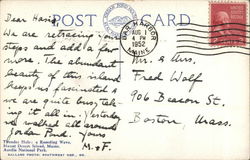 POST CARD
BAR HARBOR
AUG
4 PM
1952
MAINE
Dear
We are retracing our
steps and add a few
more. The abundant
beauty of this island
keeps us fascinated &
we are quite busy, taking
it all in. Yesterday
we walked all around
Jordan Pond. Yours
M. & F.
Mr. & Mrs.
Fred Wolf
906 Beacon St.
Boston Mass.
Thunder Hole; a Roaring Wave,
Mount Desert Island, Maine.
Acadia National Park.
BALLARD PHOTO. SOUTHWEST HBR., ME.